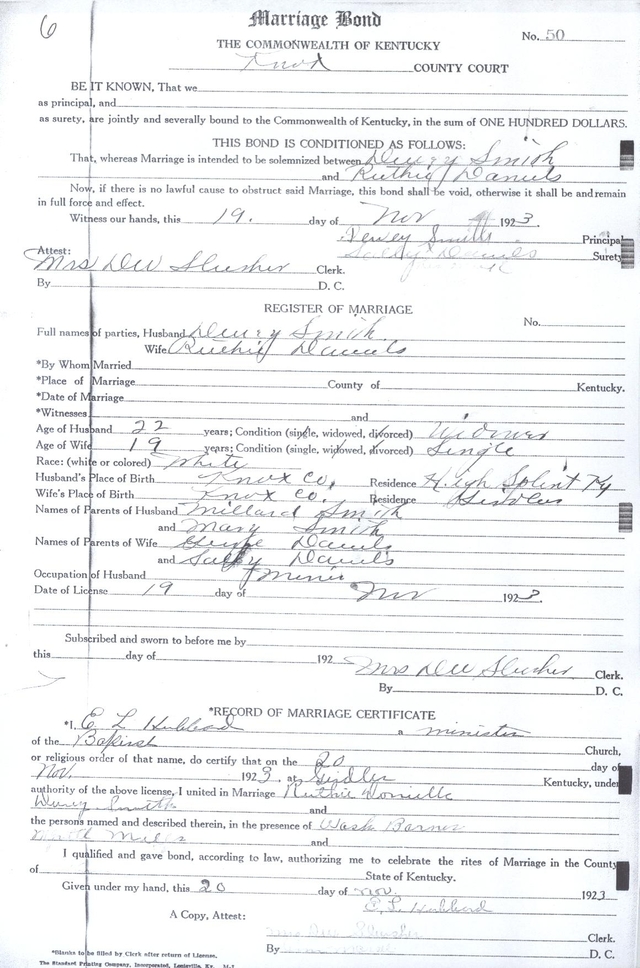 6
Marriage Bond
No. 50
THE COMMONWEALTH OF KENTUCKY
Knox COUNTY COURT
BE IT KNOWN, That we
as principal, and
as surety, are jointly and severally bound to the Commonwealth of Kentucky, in the sum of ONE HUNDRED DOLLARS.
THIS BOND IS CONDITIONED AS FOLLOWS:
That, whereas Marriage is intended to be solemnized between Dewey Smith
and Ruthie Daniels
Now, if there is no lawful cause to obstruct said Marriage, this bond shall be void, otherwise it shall be and remain
in full force and effect.
Witness our hands, this 19. day of Nov 1923
Dewey Smith Principal
Sally Daniels Surety
Attest:
Mrs Dee Slusher Clerk.
By D. C.
REGISTER OF MARRIAGE
No.
Full names of parties, Husband Dewey Smith
Wife Ruthie Daniels
*By Whom Married
*Place of Marriage County of Kentucky.
*Date of Marriage
*Witnesses and
Age of Husband 22 years; Condition (single, widowed, divorced) Widower
Age of Wife 19 years; Condition (single, widowed, divorced) Single
Race: (white or colored) White
Husband's Place of Birth Knox Co, Residence High Splint Ky
Wife's Place of Birth Knox Co. Residence
Names of Parents of Husband Millard Smith
and Mary Smith
Names of Parents of Wife Daniels
and Sally Daniels
Occupation of Husband Miner
Date of License 19 day of Nov 1923.
Subscribed and sworn to before me by
this day of 192
Mrs Dee Slusher Clerk.
By D. C.
*RECORD OF MARRIAGE CERTIFICATE
*I, E L Hubbard a minister
of the Baptist Church,
or religious order of that name, do certify that on the 20 day of
Nov. 1923. at Kentucky, under
authority of the above license, I united in Marriage Ruthie
Dewey Smith and
the persons named and described therein, in the presence of Wash Barnes
Mills and
I qualified and gave bond, according to law, authorizing me to celebrate the rites of Marriage in the County
of State of Kentucky.
Given under my hand, this 20 day of Nov. 1923
E. L. Hubbard
A Copy, Attest:
Mrs Dee Slusher Clerk.
By D. C.
*Blanks to be filled by Clerk after return of License.
The Standard Printing Company, Incorporated, Louisville, Ky.